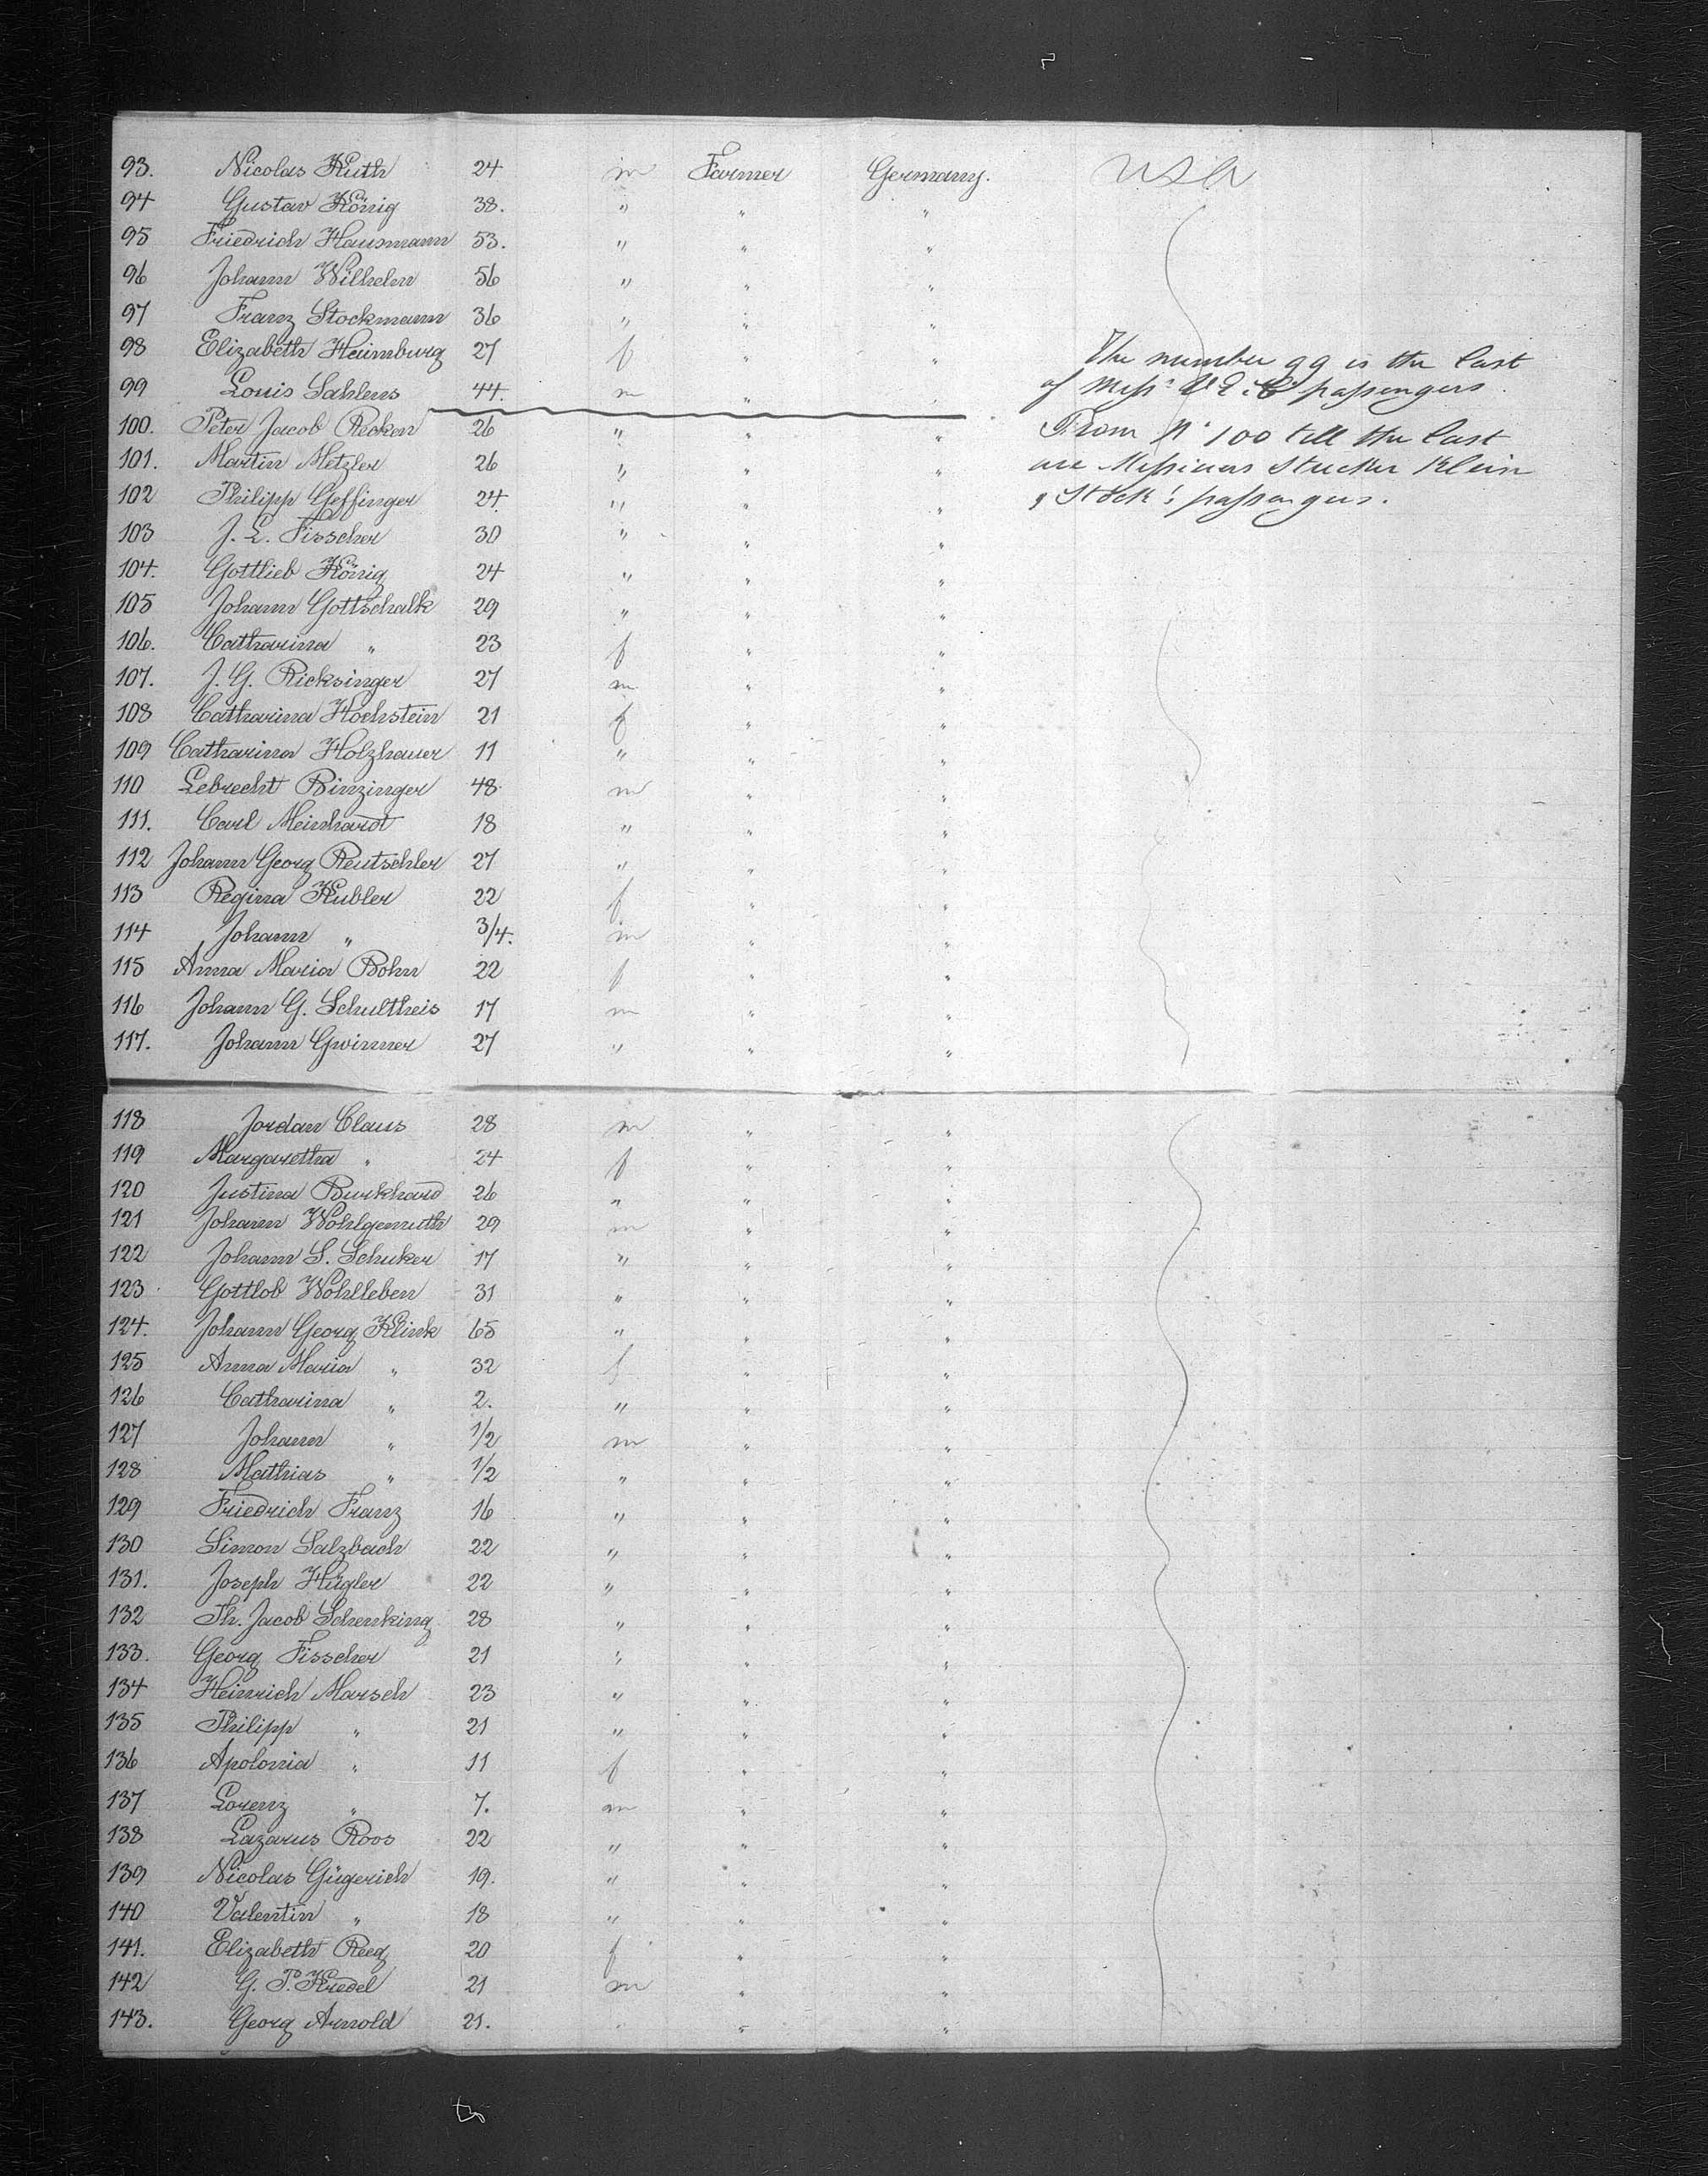 93. Nicolas Kuth 24 m Farmer Germany. USA
94 Gustav König 38. " " "
95 Friedrich Hausmann 53. " " "
96 Johann Wilhelm 56 " " "
97 Franz Stockmann 36 " " "
98 Elizabeth Heimburg 27 f " "
The number 99 is the last
99 Louis Sahlens 44. m " "
of Mess. passengers.
100. Peter Jacob Recken 26 " " "
From N. 100 till the last
101. Martin Metzler 26 " " "
are Messieurs Stucker Klein
102 Philipp Geffinger 24. " " "
& Stöck's passengers.
103 J. L. Fisscher 30 " " "
104. Gottlieb König 24 " " "
105 Johann Gottschalk 29 " " "
106. Catharina " 23 f " "
107. J. G. Ricksinger 27 m " "
108 Catharina Hochstein 21 f " "
109 Catharina Holzhauer 11 " " "
110 Lebrecht Binzinger 48 m " "
111. Carl Meinhardt 18 " " "
112 Johann Georg Reutschler 27 " " "
113 Regina Kubler 22 f " "
114 Johann " 3/4. m " "
115 Anna Maria Bohn 22 f " "
116 Johann G. Schultheis 17 m " "
117. Johann Gwinner 27 " " "
118 Jordan Claus 28 m " "
119 Margaretha " 24 f " "
120 Justina Burkhard 26 " " "
121 Johann Wohlgemuth 29 m " "
122 Johann S. Schuker 17 " " "
123 Gottlob Wohlleben 31 " " "
124. Johann Georg Klink 65 " " "
125 Anna Maria " 32 f " "
126 Catharina " 2. " " "
127 Johann " 1/2 m " "
128 Mathias " 1/2 " " "
129 Friedrich Franz 16 " " "
130 Simon Salzbach 22 " " "
131. Joseph Hügler 22 " " "
132 Ph. Jacob Schenking 28 " " "
133. Georg Fisscher 21 " " "
134 Heinrich Marsch 23 " " "
135 Philipp " 21 " " "
136 Apolonia " 11 f " "
137 Lorenz " 7. m " "
138 Lazarus Roos 22 " " "
139 Nicolas Gügerich 19. " " "
140 Valentin " 18 " " "
141. Elizabeth Reeg 20 f " "
142 G. P. Kredel 21 m " "
143. Georg Arnold 21. " " "